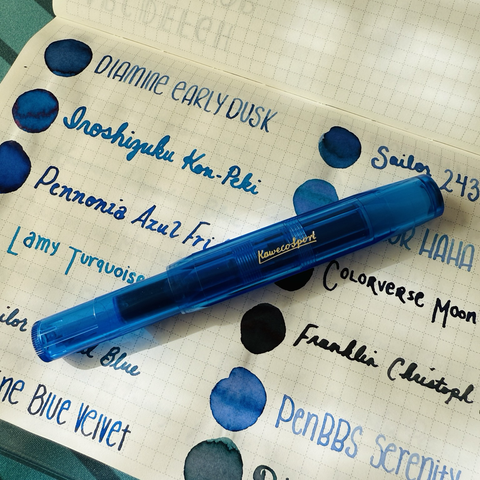 DIAMINE EARLY DUSK
Iroshizuku Kon-Peki
Pennonia Azul Fri
Lamy Turquoise
Blue
Blue Velvet
Sailor 243
HAHA
Colorverse Moon
Franklin Christoph
PenBBS Serenity
Kaweco Sport